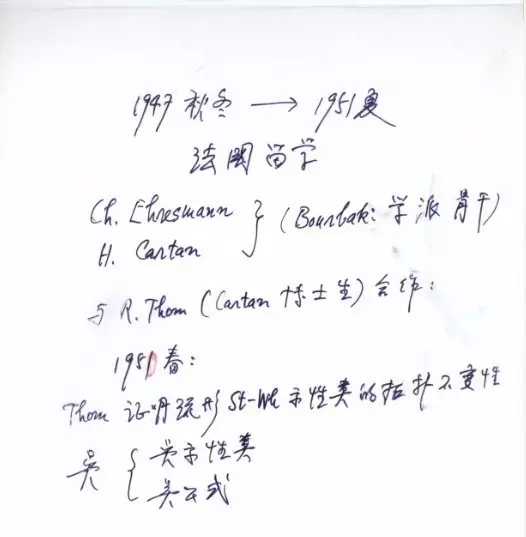 1947 秋冬 → 1951夏
法国留学
Ch. Ehresmann
H. Cartan } (Bourbaki 学派骨干)
与 R. Thom (Cartan 博士生) 合作:
1951春:
Thom 证明流形 St-Wh 示性类的拓扑不变性
吴 { 吴示性类
吴公式